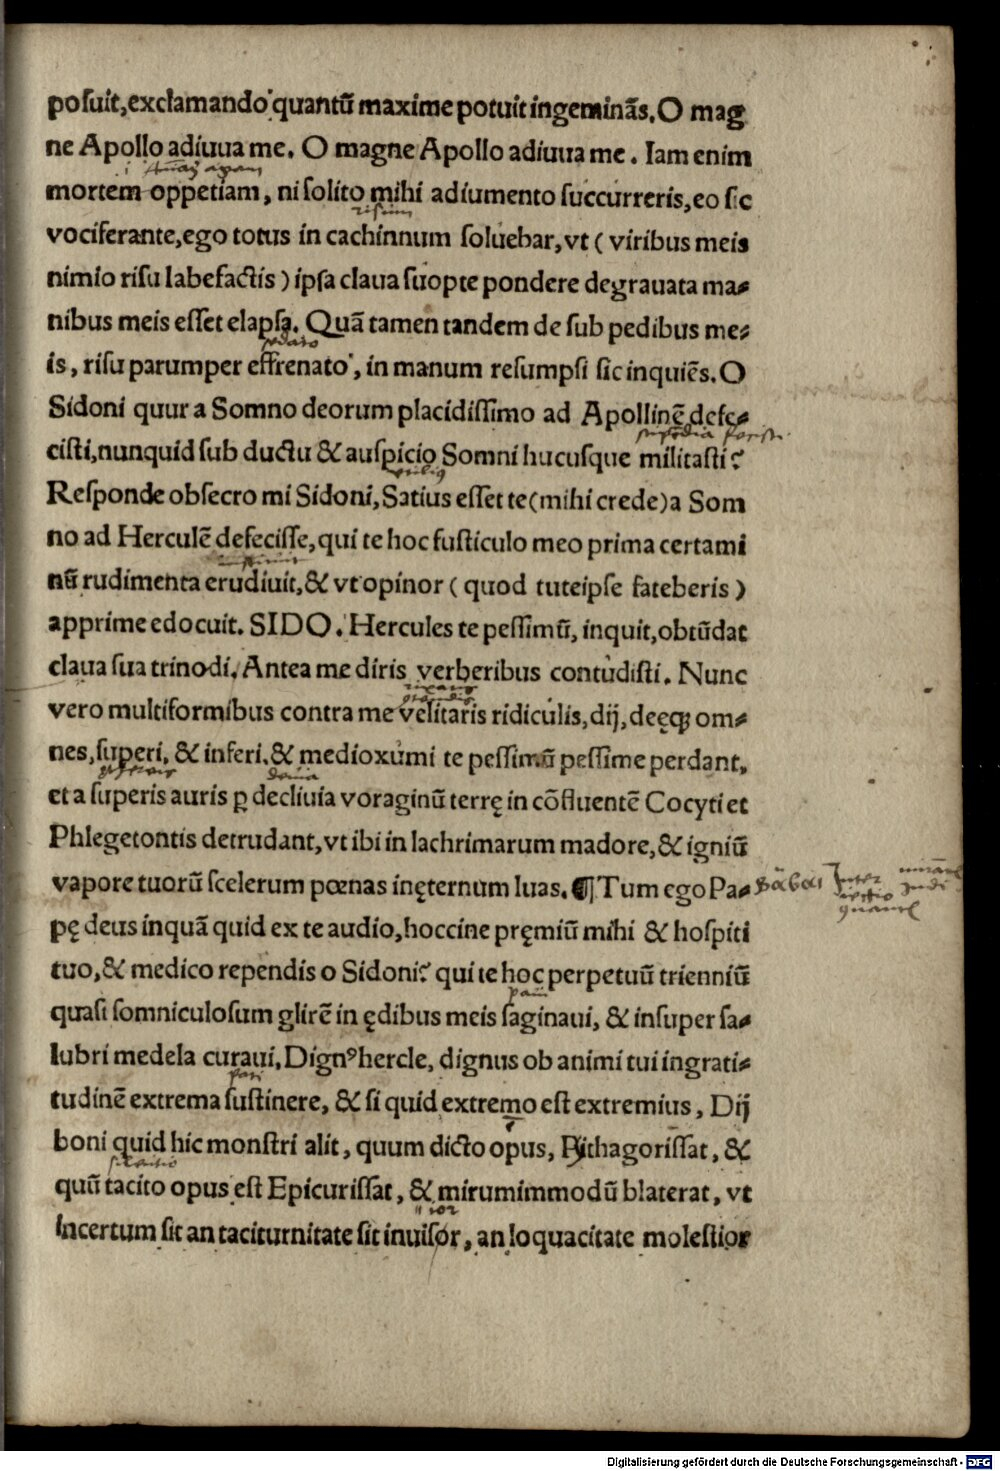 posuit, exclamando quantū maxime potuit ingeminās. O mag
ne Apollo adiuua me. O magne Apollo adiuua me. Iam enim
mortem oppetiam, ni solito mihi adiumento succurreris, eo sic
risum
vociferante, ego totus in cachinnum soluebar, vt ( viribus meis
nimio risu labefactis ) ipsa claua suopte pondere degrauata ma⸗
nibus meis esset elapsa. Quā tamen tandem de sub pedibus me⸗
is, risu parumper effrenato, in manum resumpsi sic inquiēs. O
Sidoni quur a Somno deorum placidissimo ad Apollinē defe⸗
cisti, nunquid sub ductu & auspicio Somni hucusque militasti?
Responde obsecro mi Sidoni, Satius esset te (mihi crede) a Som
no ad Herculē defecisse, qui te hoc fusticulo meo prima certami
nū rudimenta erudiuit, & vt opinor ( quod tuteipse fateberis )
apprime edocuit. SIDO. Hercules te pessimū, inquit, obtūdat
claua sua trinodi. Antea me diris verberibus contudisti. Nunc
vero multiformibus contra me velitaris ridiculis, dij, deęqꝫ om⸗
nes, superi, & inferi, & medioxumi te pessimū pessime perdant,
et a superis auris ꝑ decliuia voraginū terrę in cōfluentē Cocyti et
Phlegetontis detrudant, vt ibi in lachrimarum madore, & igniū
vapore tuorū scelerum pœnas inęternum luas. ¶ Tum ego Pa⸗
pę deus inquā quid ex te audio, hoccine pręmiū mihi & hospiti
tuo, & medico rependis o Sidoni? qui te hoc perpetuū trienniū
quasi somniculosum glirē in ędibus meis saginaui, & insuper sa⸗
lubri medela curaui, Dignꝰ hercle, dignus ob animi tui ingrati⸗
pati
tudinē extrema sustinere, & si quid extremo est extremius, Dij
boni quid hic monstri alit, quum dicto opus, Pithagorissat, &
quū tacito opus est Epicurissat, & mirumimmodū blaterat, vt
incertum sit an taciturnitate sit inuisor, an loquacitate molestior
Digitalisierung gefördert durch die Deutsche Forschungsgemeinschaft - DFG